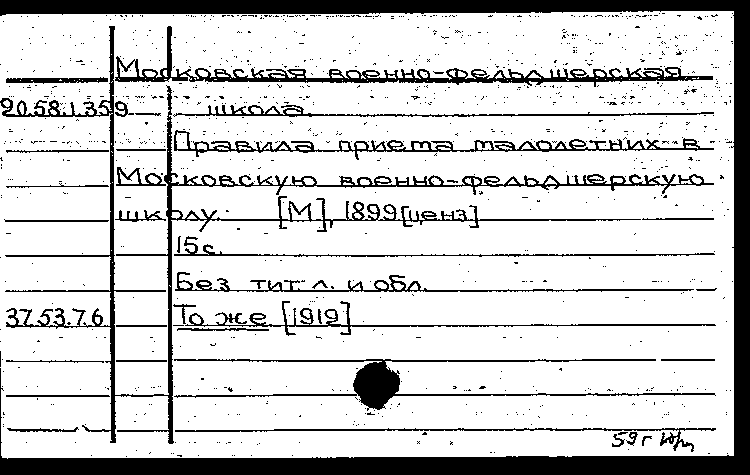 Московская военно-фельдшерская
20.58.1.359 школа.
Правила приема малолетних в
Московскую военно-фельдшерскую
школу. [М], 1899 [ценз]
15 с.
Без тит л. и обл.
37.53.7.6 То же [1919]
59 г